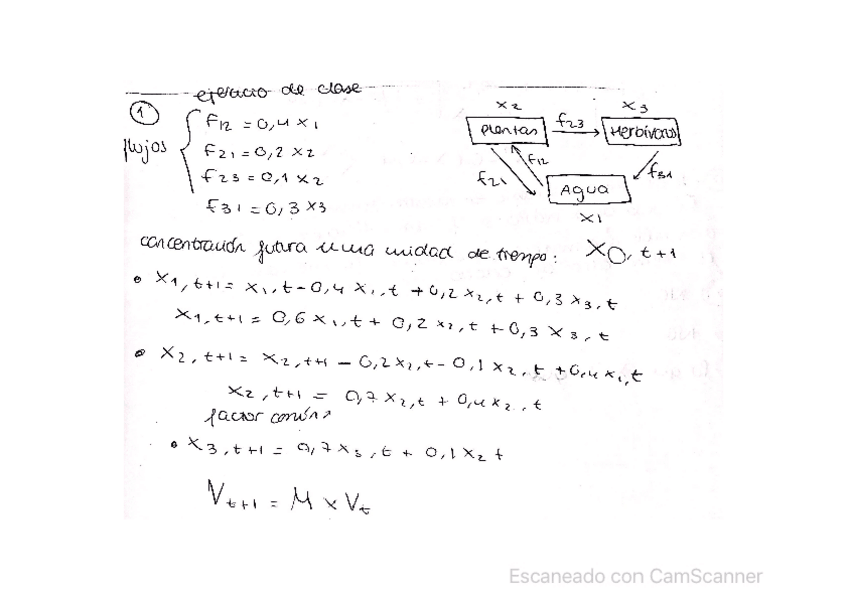 ejercicio de clase
① flujos
F12 = 0,4 x1
F21 = 0,2 x2
F23 = 0,1 x2
F31 = 0,3 x3
x2 x3
Plantas f23 Herbívoros
f21 f12 f31
Agua
x1
concentración futura una unidad de tiempo: X0, t+1
• x1, t+1 = x1,t - 0,4 x1,t + 0,2 x2,t + 0,3 x3,t
x1, t+1 = 0,6 x1,t + 0,2 x2,t + 0,3 x3,t
• x2, t+1 = x2, t+1 - 0,2 x2,t - 0,1 x2,t + 0,4 x1,t
x2, t+1 = 0,7 x2,t + 0,4 x2,t
factor común
• x3, t+1 = 0,7 x3,t + 0,1 x2 t
Vt+1 = M x Vt
Escaneado con CamScanner